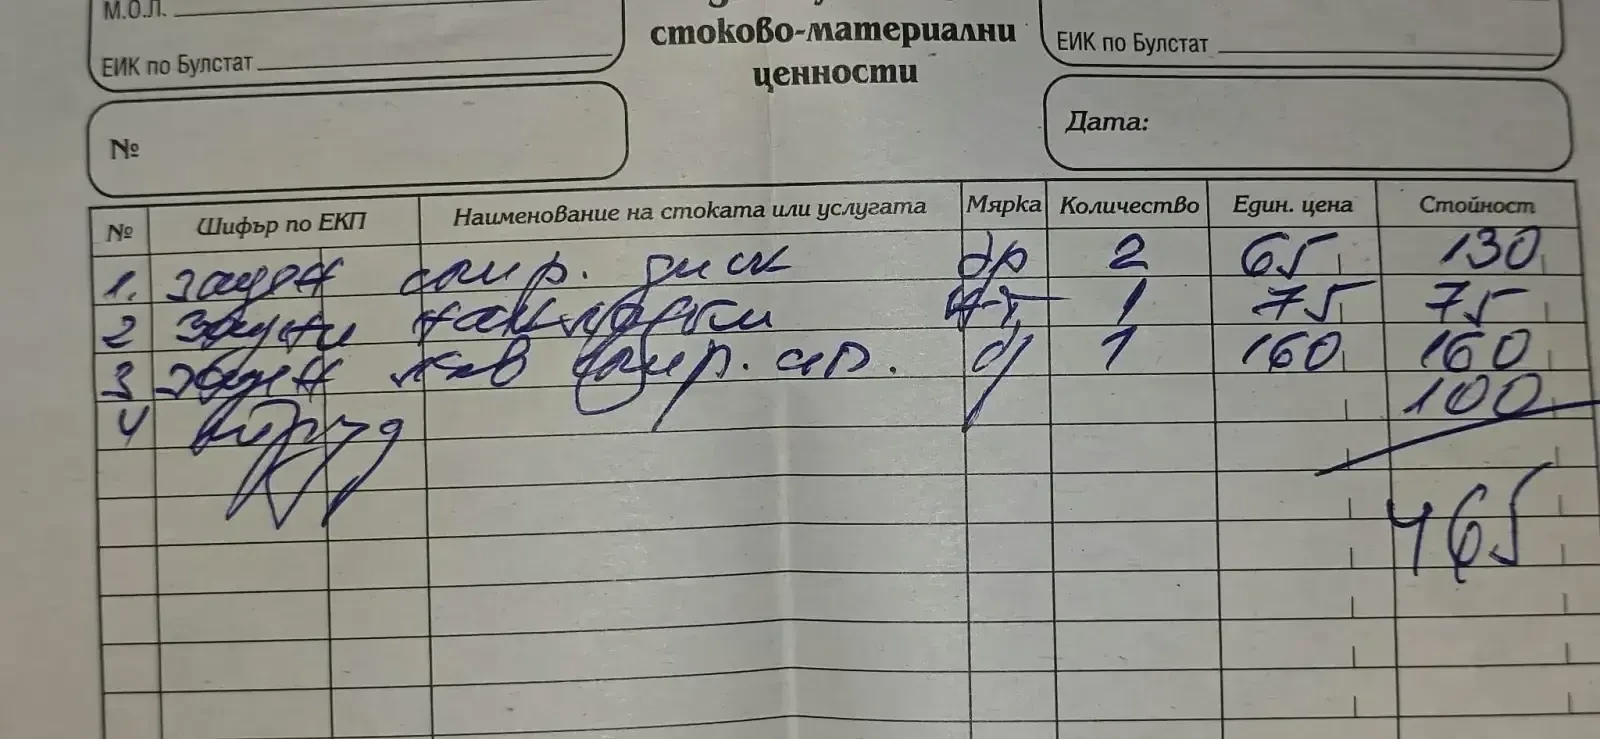 М.О.Л.
ЕИК по Булстат
№
стоково-материални
ценности
ЕИК по Булстат
Дата:
№ Шифър по ЕКП Наименование на стоката или услугата Мярка Количество Един. цена Стойност
1. заден спир. диск бр 2 65 130
2 задни накладки к-т 1 75 75
3 заден ляв спир. ап. бр 1 160 160
4 труд 100
465